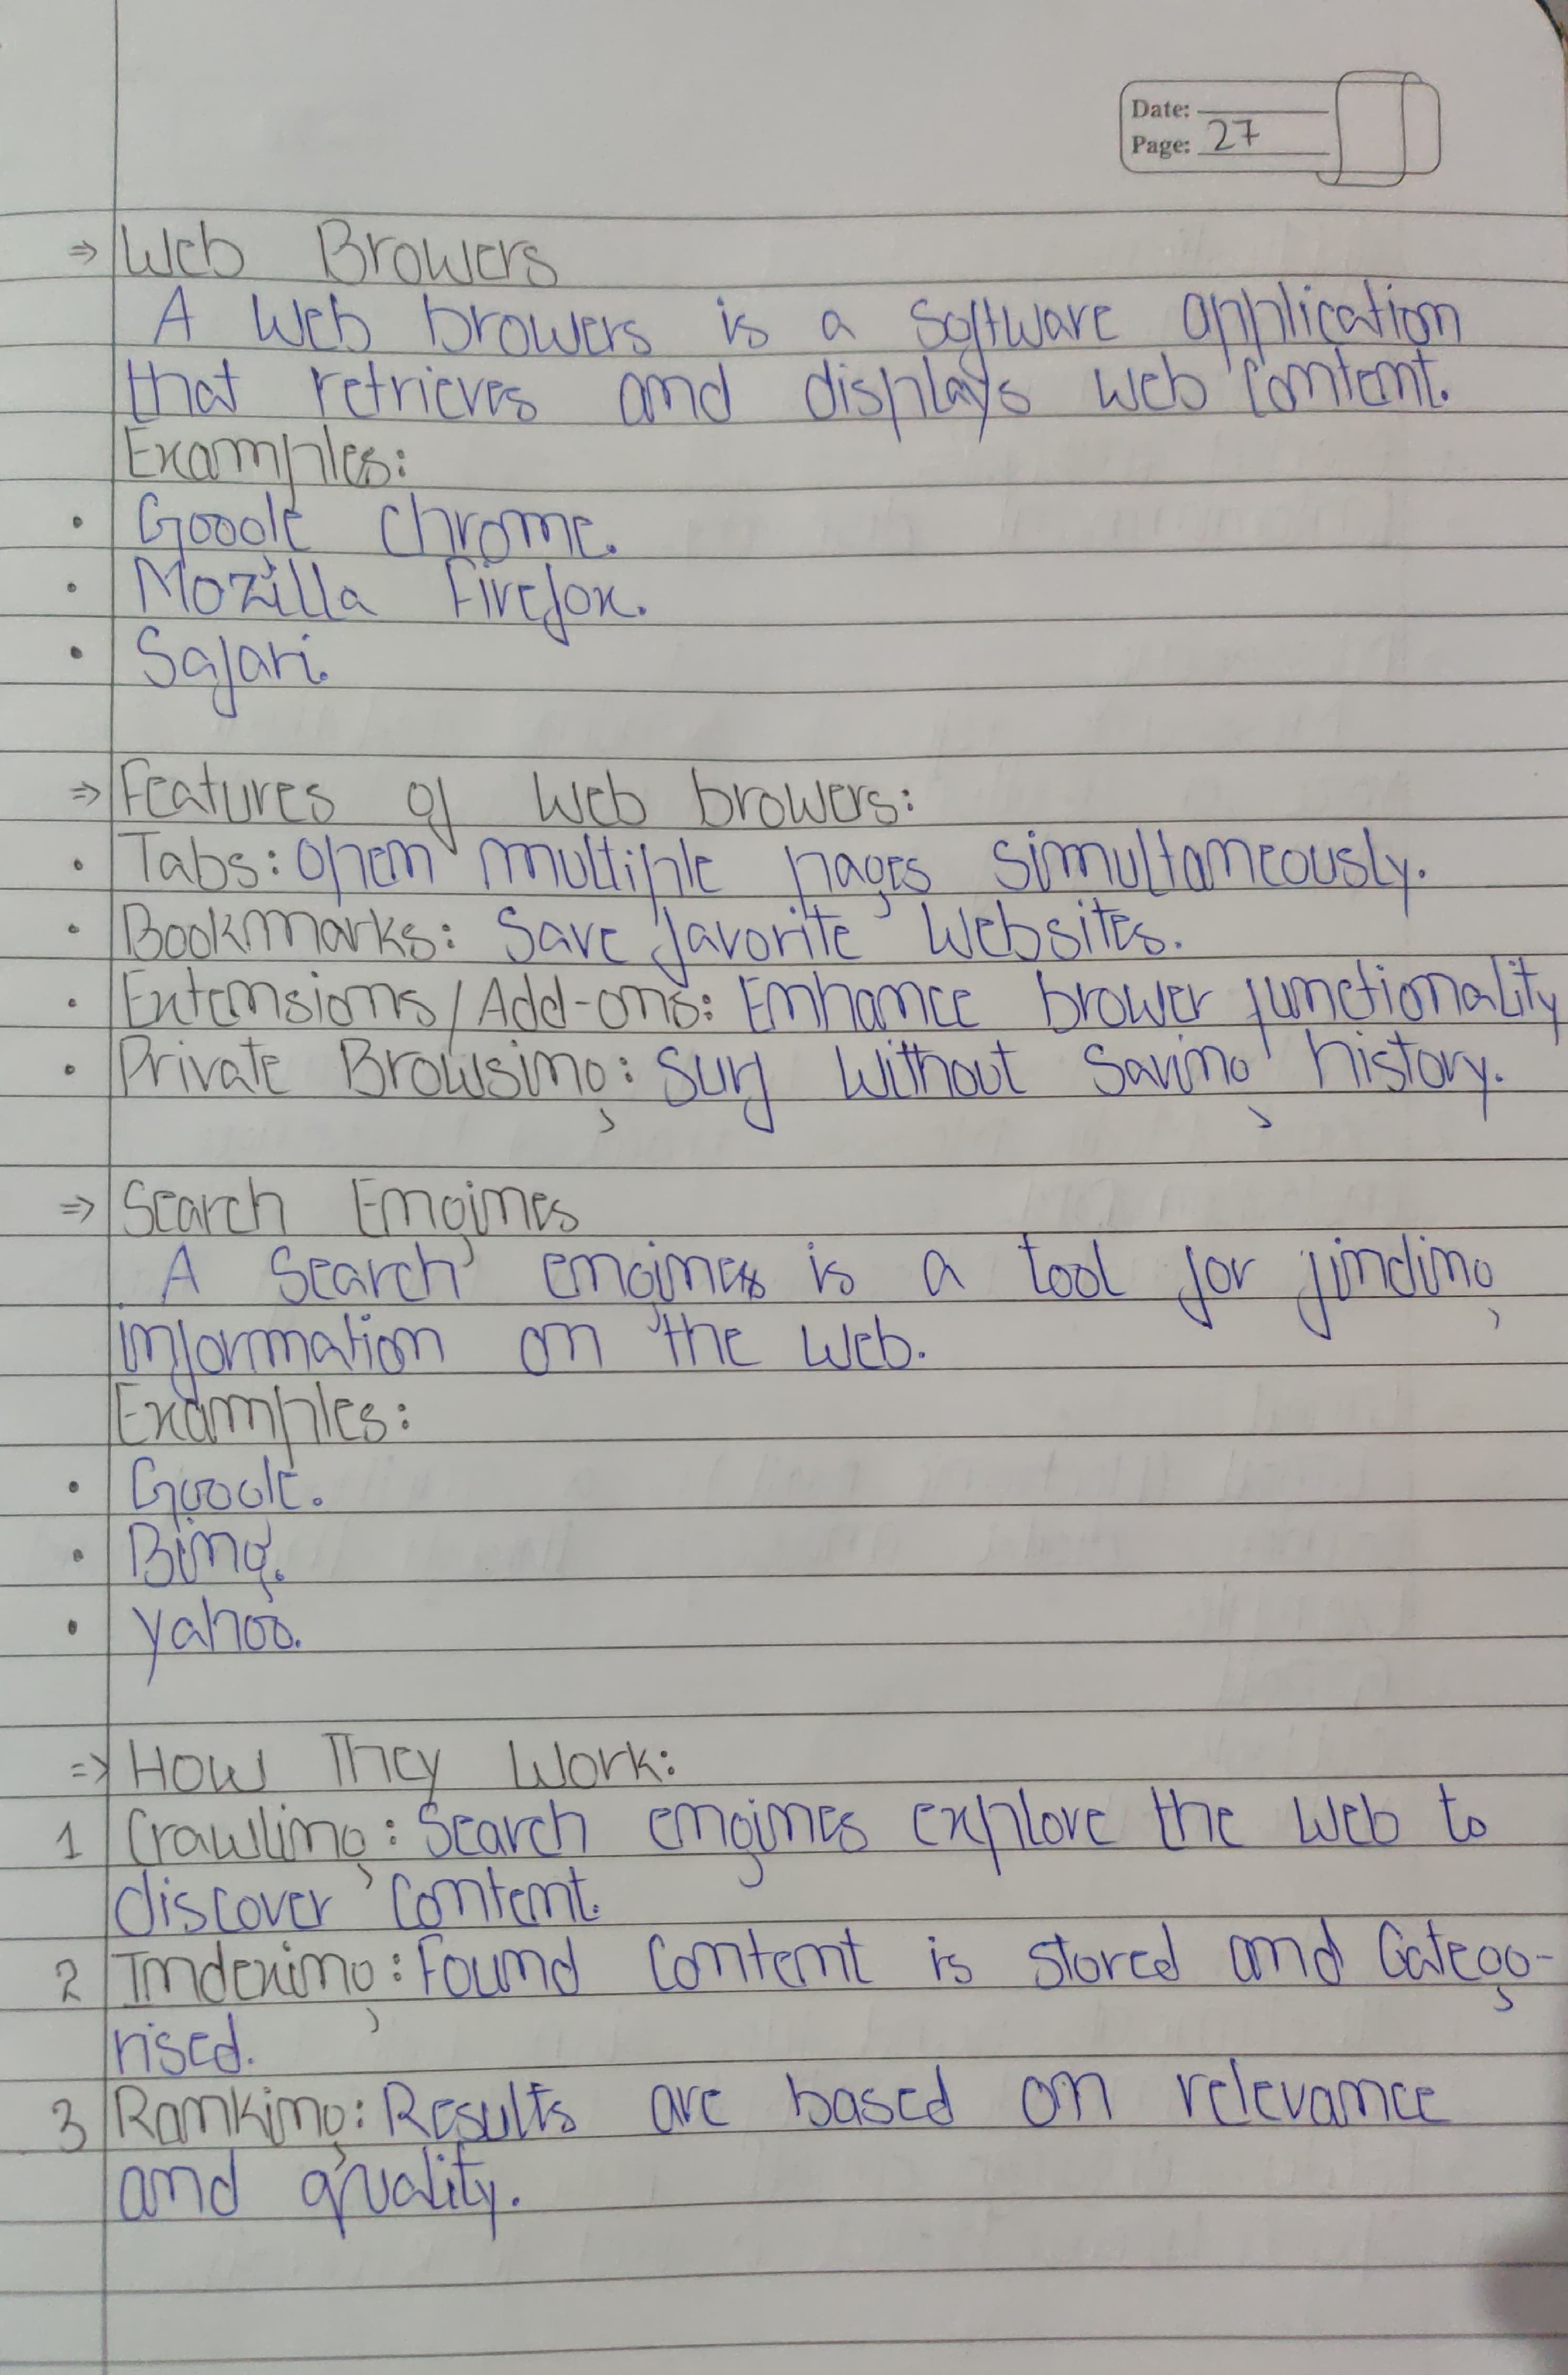 Date:
Page: 27
⇒ Web Browers
A web browers is a software application
that retrieves and displays web content.
Examples:
• Google Chrome.
• Mozilla Firefox.
• Safari.
⇒ Features of Web browers:
• Tabs: Open multiple pages simultaneously.
• Bookmarks: Save favorite websites.
• Extensions/Add-ons: Enhance brower functionality
• Private Browsing: Surf without saving history.
⇒ Search Engines
A search engines is a tool for finding
information on the web.
Examples:
• Google.
• Bing.
• Yahoo.
=> How They Work:
1 Crawling: Search engines explore the web to
discover content.
2 Indexing: Found content is stored and Catego-
rised.
3 Ranking: Results are based on relevance
and quality.